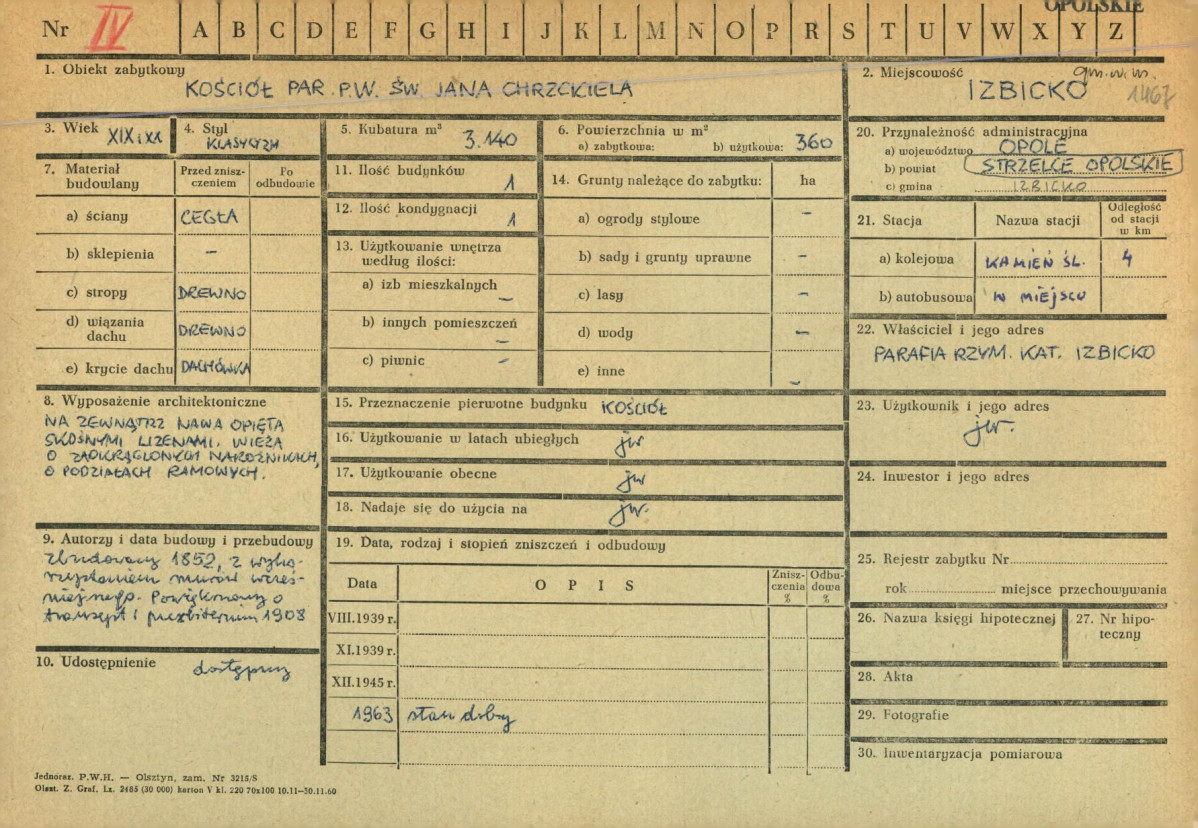 OPOLSKIE
Nr IV A B C D E F G H I J K L M N O P R S T U V W X Y Z
1. Obiekt zabytkowy
KOŚCIÓŁ PAR. P.W. ŚW. JANA CHRZCICIELA
2. Miejscowość gm. w m.
IZBICKO 1467
3. Wiek XIX i XX
4. Styl
KLASYCYZM
5. Kubatura m³ 3.140
6. Powierzchnia w m²
a) zabytkowa: b) użytkowa: 360
20. Przynależność administracyjna
a) województwo OPOLE
b) powiat STRZELCE OPOLSKIE
c) gmina IZBICKO
7. Materiał budowlany
Przed znisz-
czeniem
Po
odbudowie
a) ściany CEGŁA
b) sklepienia –
c) stropy DREWNO
d) wiązania
dachu DREWNO
e) krycie dachu DACHÓWKA
11. Ilość budynków 1
12. Ilość kondygnacji 1
13. Użytkowanie wnętrza
według ilości:
a) izb mieszkalnych –
b) innych pomieszczeń –
c) piwnic –
14. Grunty należące do zabytku: ha
a) ogrody stylowe –
b) sady i grunty uprawne –
c) lasy –
d) wody –
e) inne –
21. Stacja Nazwa stacji
Odległość
od stacji
w km
a) kolejowa KAMIEŃ ŚL. 4
b) autobusowa W MIEJSCU
22. Właściciel i jego adres
PARAFIA RZYM. KAT. IZBICKO
8. Wyposażenie architektoniczne
NA ZEWNĄTRZ NAWA OPIĘTA
SKOŚNYMI LIZENAMI. WIEŻA
O ZAOKRĄGLONYCH NAROŻNIKACH,
O PODZIAŁACH RAMOWYCH.
15. Przeznaczenie pierwotne budynku KOŚCIÓŁ
16. Użytkowanie w latach ubiegłych jw
17. Użytkowanie obecne jw
18. Nadaje się do użycia na jw.
23. Użytkownik i jego adres
jw.
24. Inwestor i jego adres
9. Autorzy i data budowy i przebudowy
Zbudowany 1852, z wyko-
rzystaniem murów wcześ-
niejszego. Powiększony o
transept i prezbiterium 1908
10. Udostępnienie dostępny
19. Data, rodzaj i stopień zniszczeń i odbudowy
Data O P I S
Znisz-
czenia
%
Odbu-
dowa
%
VIII.1939 r.
XI.1939 r.
XII.1945 r.
1963 stan dobry
25. Rejestr zabytku Nr
rok miejsce przechowywania
26. Nazwa księgi hipotecznej
27. Nr hipo-
teczny
28. Akta
29. Fotografie
30. Inwentaryzacja pomiarowa
Jednoraz. P.W.H. — Olsztyn, zam. Nr 3215/S
Olszt. Z. Graf. Lz. 2485 (30 000) karton V kl. 220 70x100 10.11–30.11.60